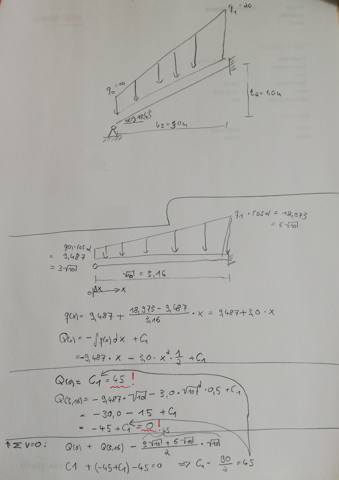 q₁ = 20
q₀ = 10
18,43°
l₂ = 1,0m
l₁ = 3,0m
q₁ · cos α = 18,973
= 6√10
q₀ · cos α
= 9,487
= 3√10
√10 = 3,16
0 x
q(x) = 9,487 + (18,973 - 9,487)/3,16 · x = 9,487 + 3,0 · x
Q(x) = -∫q(x)dx + C₁
= -9,487 · x - 3,0 · x² · 1/2 + C₁
Q(0) = C₁ = 45 !
Q(3,16) = -9,487 · √10 - 3,0 · √10² · 0,5 + C₁
= -30,0 - 15 + C₁
= -45 + C₁ = 0 !
↑ Σ V=0: Q(0) + Q(3,16) - (3√10 + 6√10)/2 · √10
C1 + (-45+C₁) - 45 = 0 ⇒ C₁ = 90/2 = 45